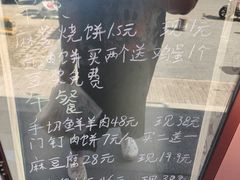 麻酱烧饼1.5元 现1元
肉饼买两个送鸡蛋1个
免费
午餐
手切鲜羊肉48元 现38元
门钉肉饼7元/个 买二送一
麻豆腐28元 现19.9元